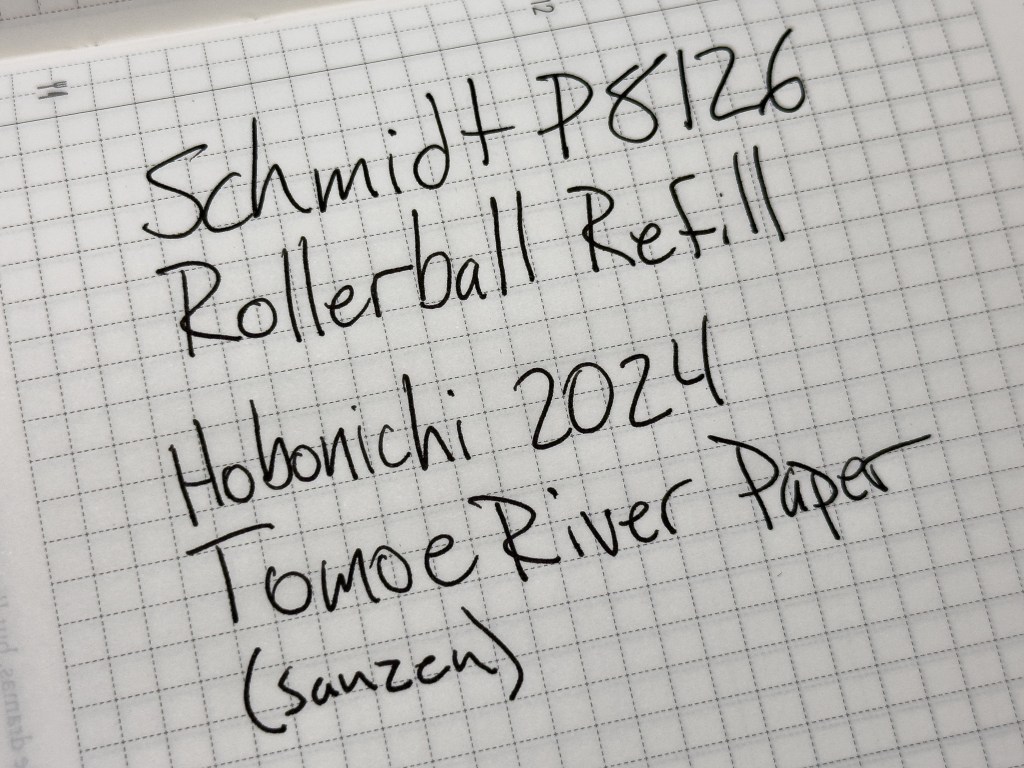 12
14
Schmidt P8126
Rollerball Refill
Hobonichi 2024
Tomoe River Paper
(sanzen)